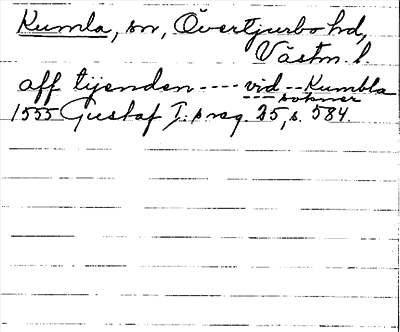 Kumla, sn, Övertjurbo hd,
Västm. l.
aff tijenden ---- vid -- Kumbla
sokner
1555 Gustaf I:s reg. 25, s. 584.